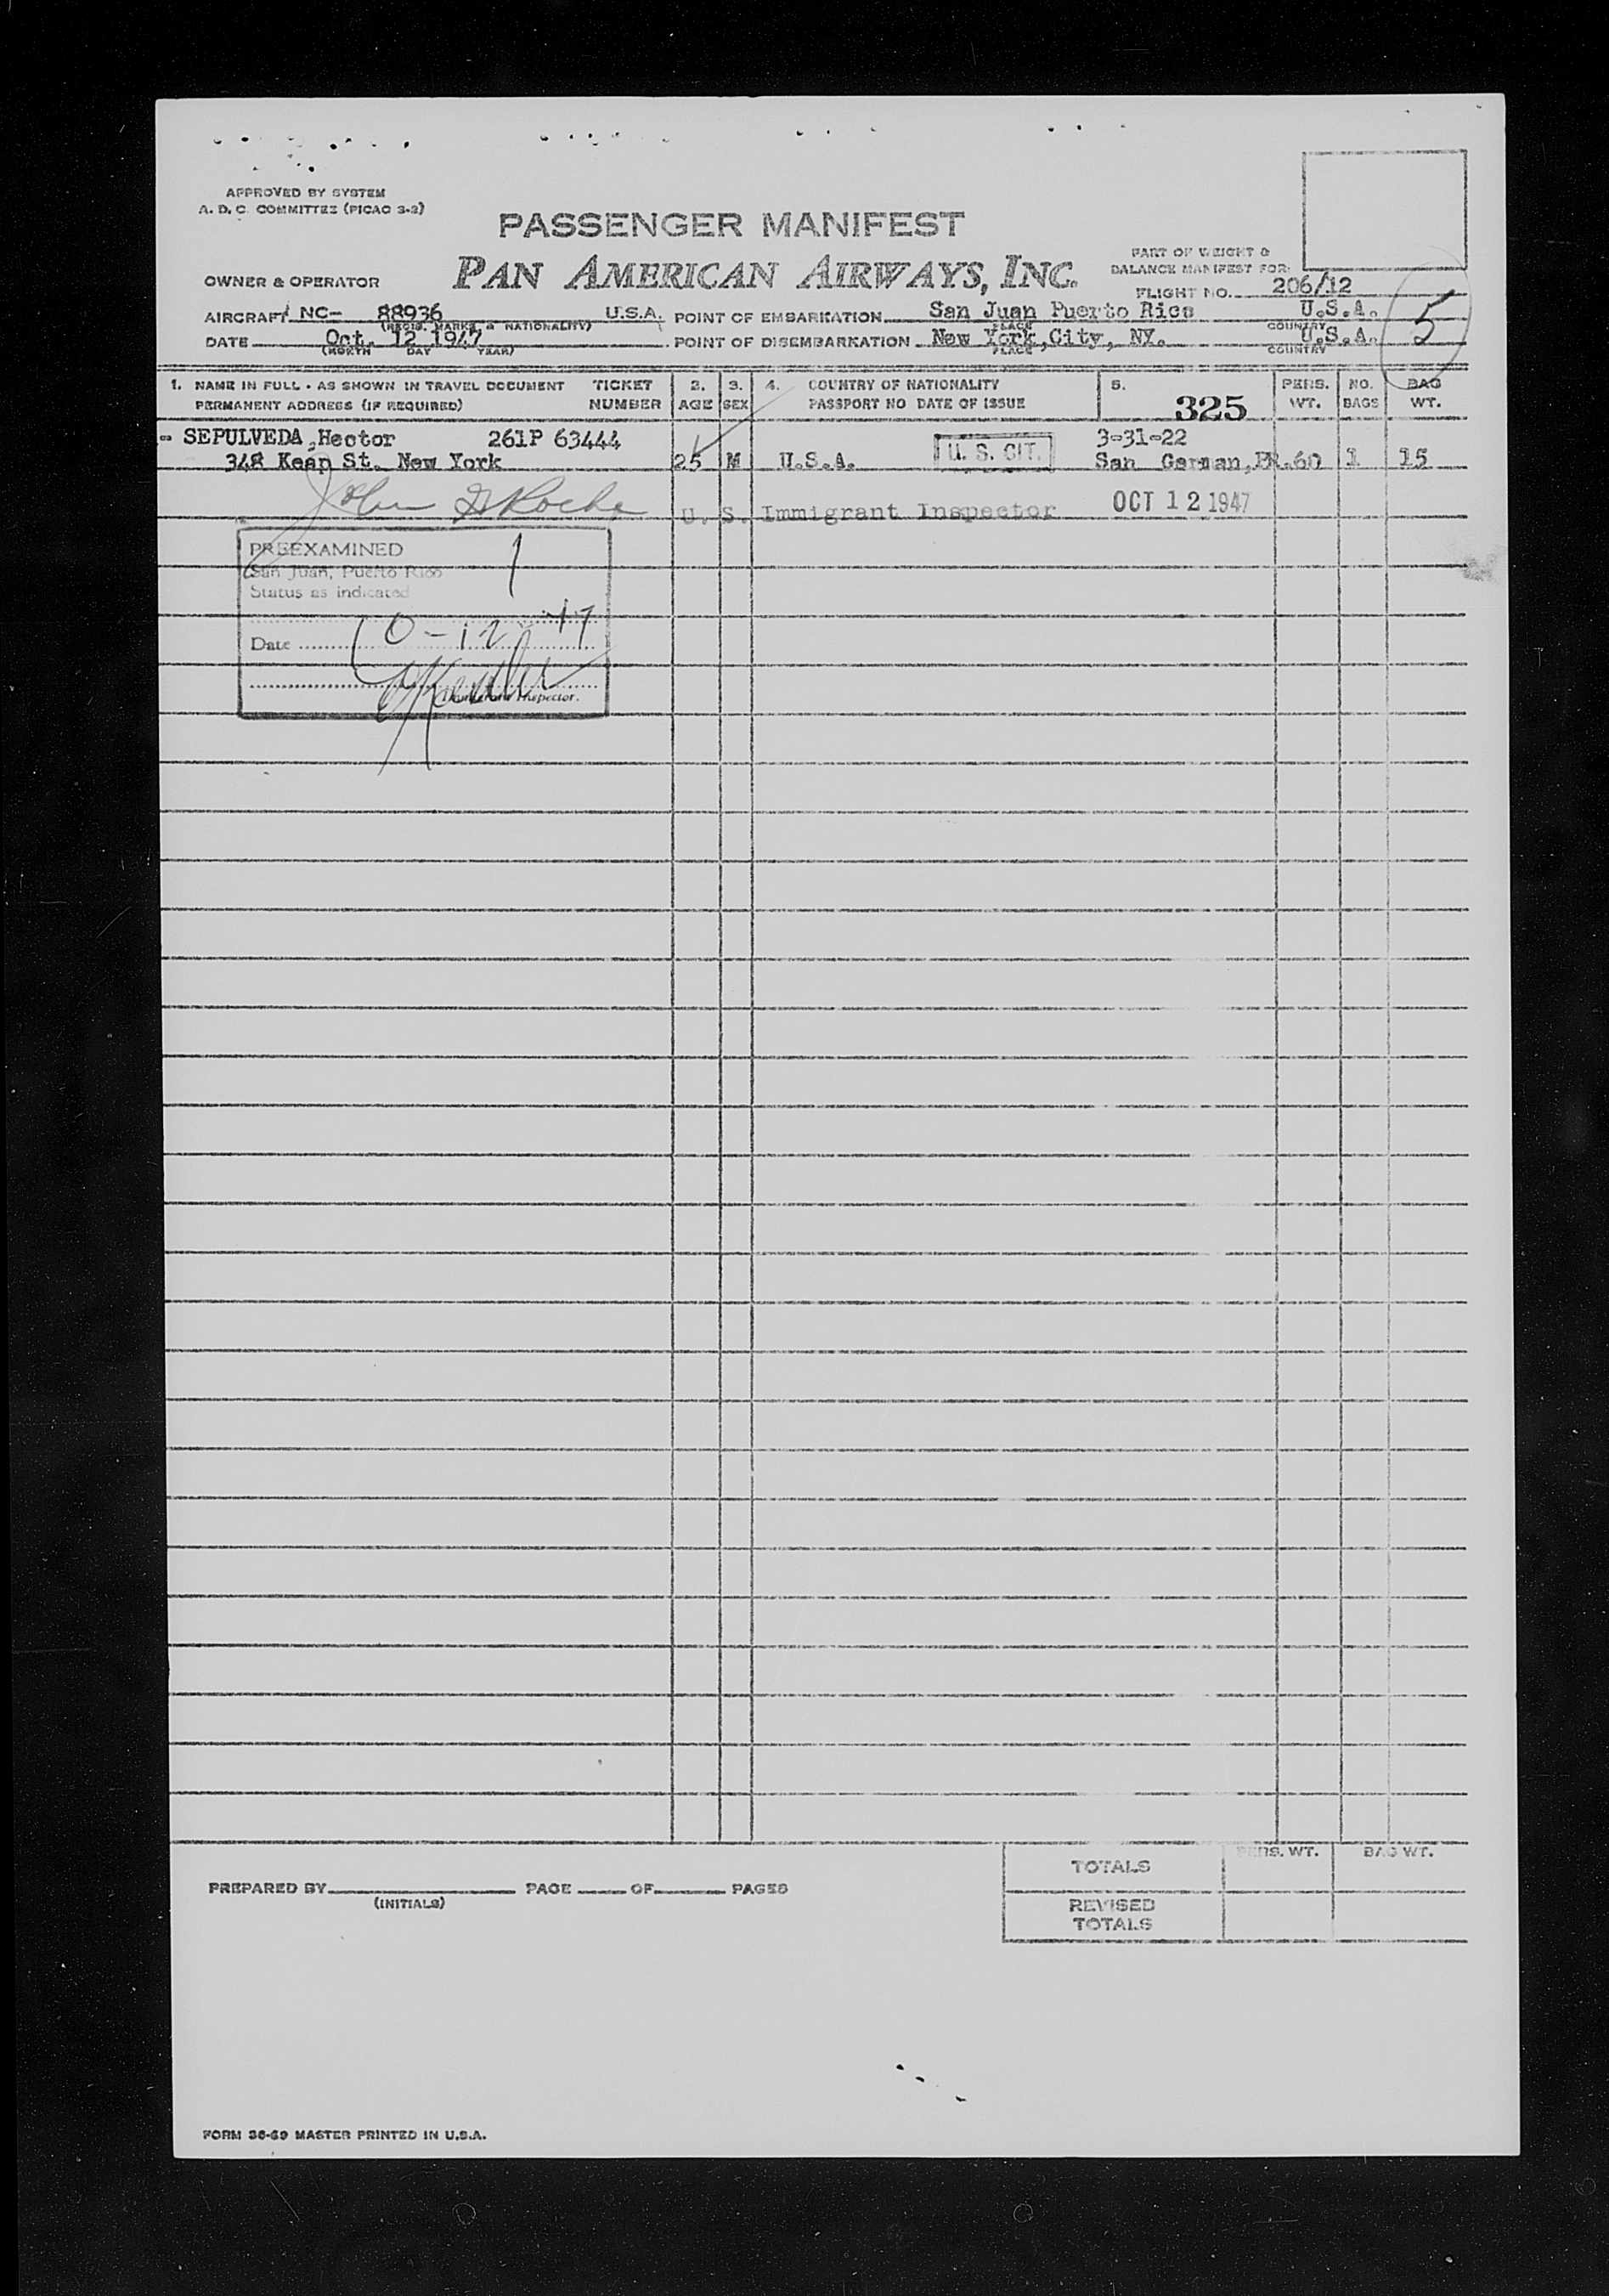 APPROVED BY SYSTEM
A. D. C. COMMITTEE (PICAO 3-2)
PASSENGER MANIFEST
PAN AMERICAN AIRWAYS, INC.
PART OF WEIGHT &
BALANCE MANIFEST FOR:
OWNER & OPERATOR
FLIGHT NO. 206/12
AIRCRAFT NC- 88936 U.S.A. POINT OF EMBARKATION San Juan Puerto Rico U.S.A. 5
(REGIS. MARKS & NATIONALITY) PLACE COUNTRY
DATE Oct. 12 1947 POINT OF DISEMBARKATION New York,City, NY. U.S.A.
(MONTH DAY YEAR) PLACE COUNTRY
1. NAME IN FULL - AS SHOWN IN TRAVEL DOCUMENT TICKET 2. 3. 4. COUNTRY OF NATIONALITY 5. PERS. NO. BAG
PERMANENT ADDRESS (IF REQUIRED) NUMBER AGE SEX PASSPORT NO DATE OF ISSUE 325 WT. BAGS WT.
- SEPULVEDA,Hector 261P 63444 3-31-22
348 Keap St. New York 25 M U.S.A. U. S. CIT. San German,PR. 60 1 15
John Roche U. S. Immigrant Inspector OCT 12 1947
PREEXAMINED 1
San Juan, Puerto Rico
Status as indicated
Date 10-12-47
Immigrant Inspector.
PREPARED BY PAGE OF PAGES
(INITIALS)
TOTALS PERS. WT. BAG WT.
REVISED
TOTALS
FORM 36-69 MASTER PRINTED IN U.S.A.